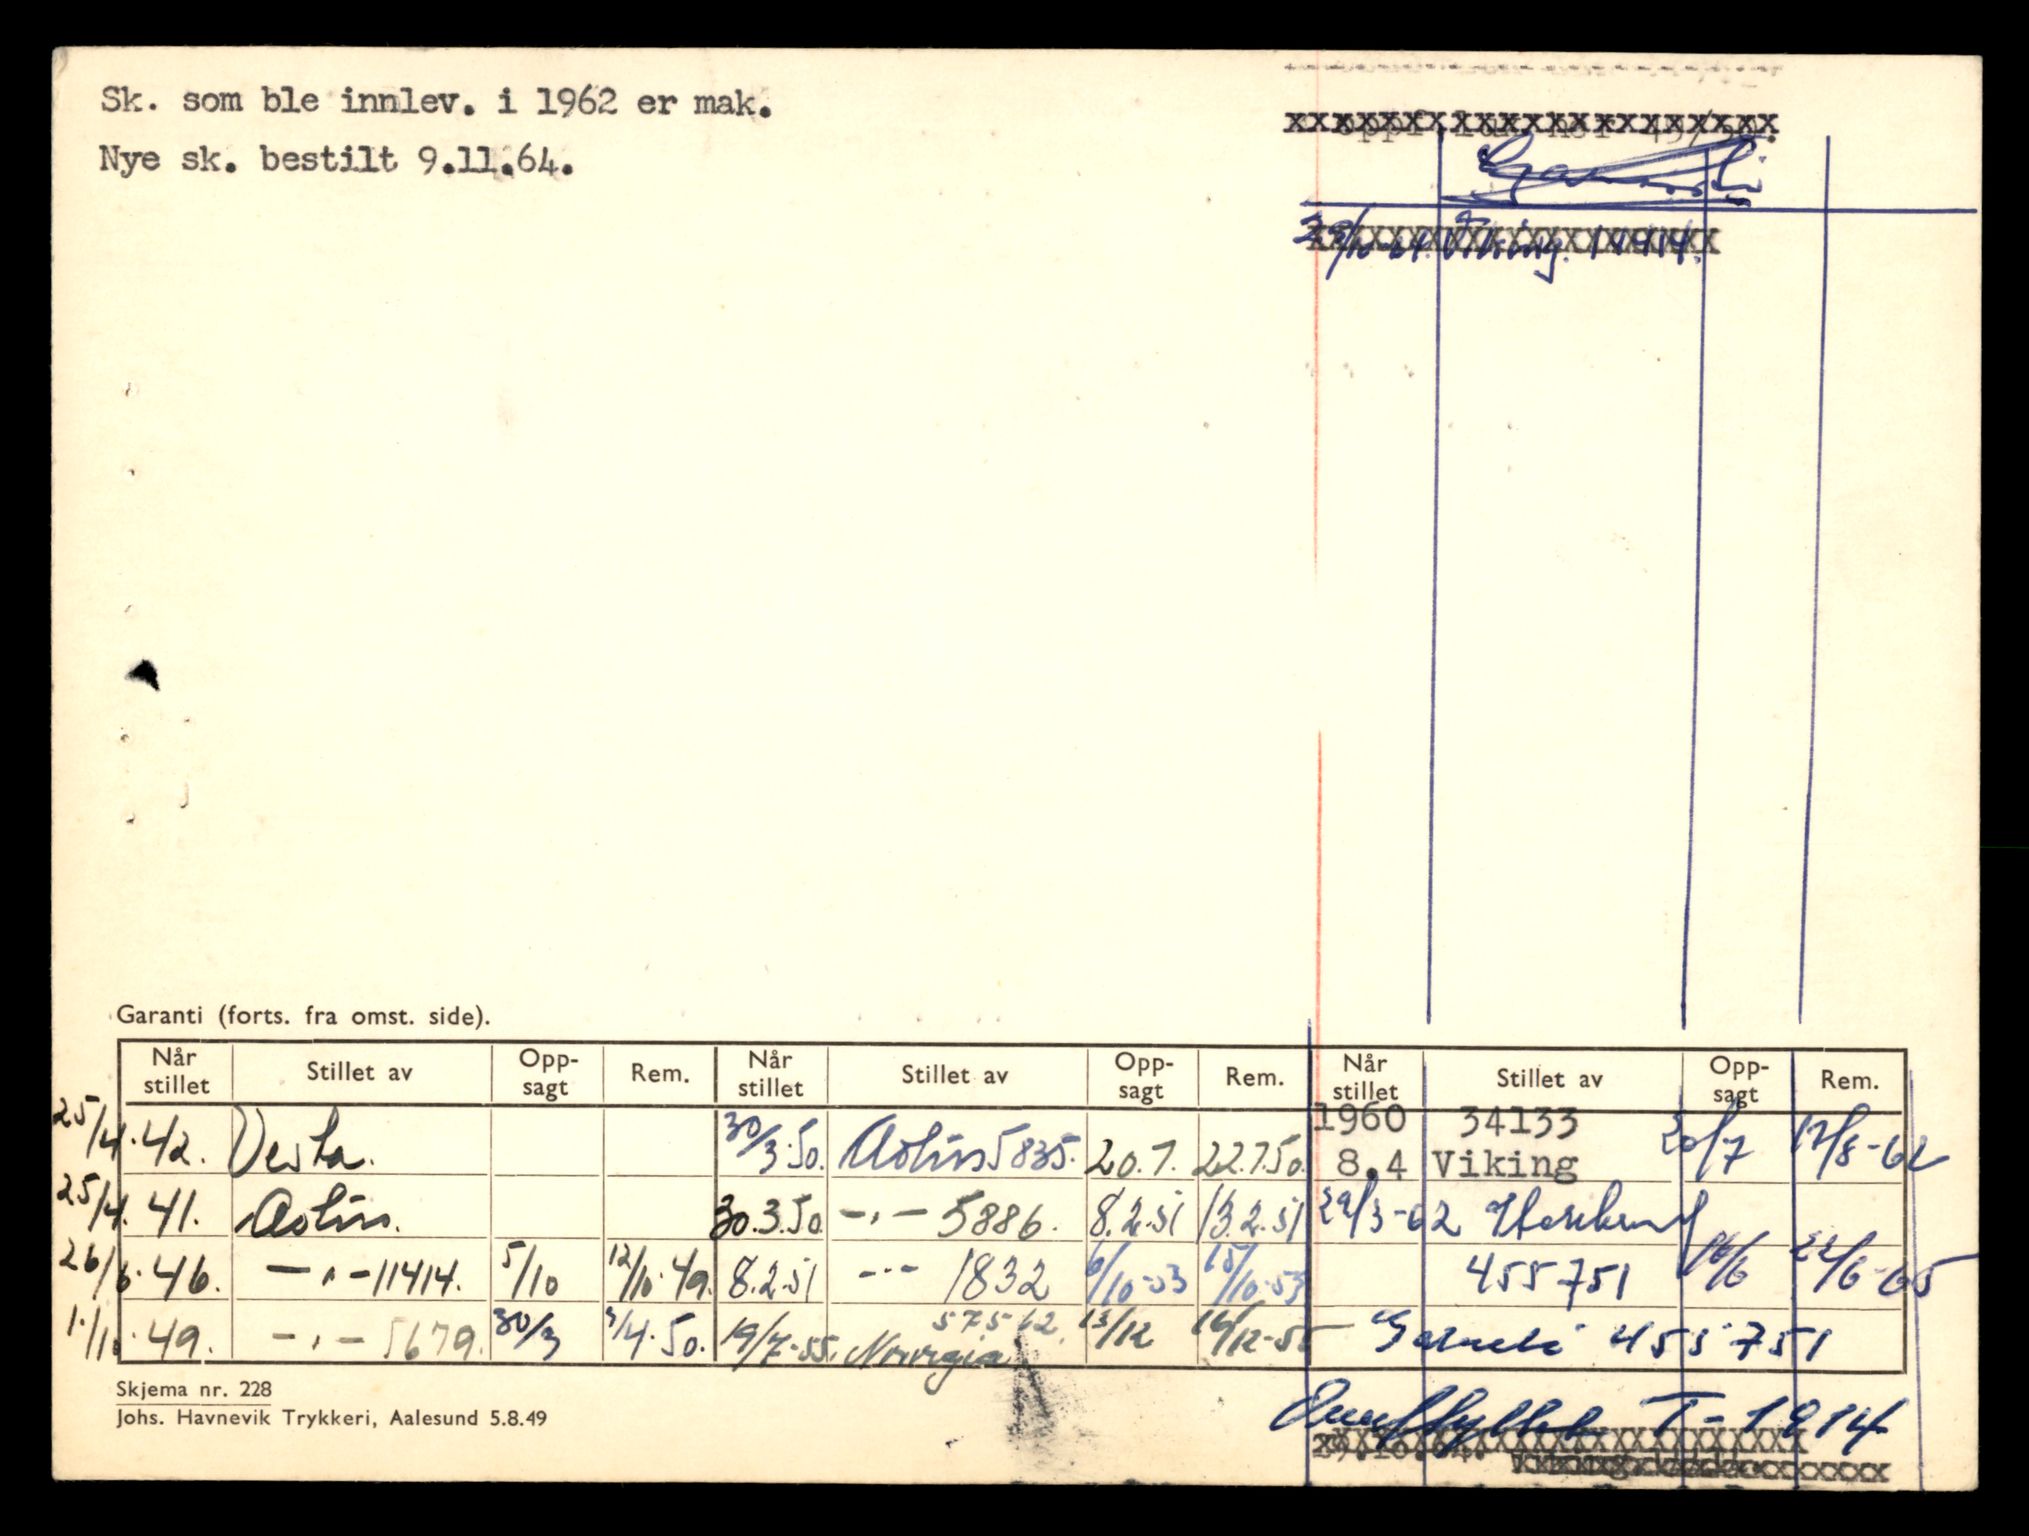 Sk. som ble innlev. i 1962 er mak.
Nye sk. bestilt 9.11.64.
Viking.
Garanti (forts. fra omst. side).
Når stillet Stillet av Opp-sagt Rem. Når stillet Stillet av Opp-sagt Rem. Når stillet Stillet av Opp-sagt Rem.
25/4.42. Vesta. 30/3.50. 5835. 20.7. 22.7.50. 1960 8.4 34133 Viking 20/7 17/8-62
25/4.41. 30.3.50 -"- 5886. 8.2.51 13.2.51 29/3-62
26/6.46. -"- 11414. 5/10 12/10.49. 8.2.51 -"- 1832 6/10-53 15/10-53 455751 16/6 22/6-65
1/10.49. -"- 5679. 30/3 3/4.50. 19/7-55. 57562 Norrgia 13/12 16/12-55 455751
Skjema nr. 228
Johs. Havnevik Trykkeri, Aalesund 5.8.49
T-1914